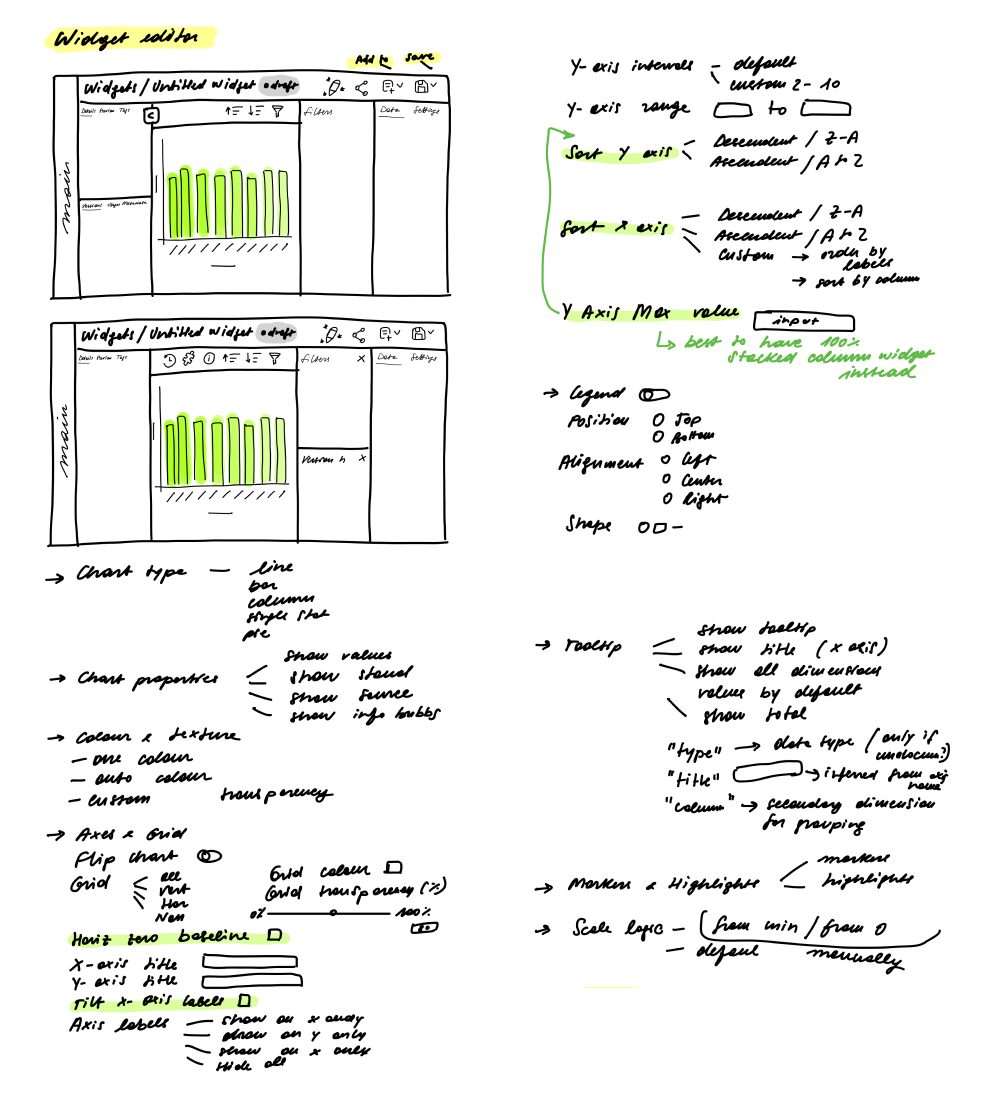 Widget editor
Add to save
Widgets / Untitled widget draft
Details Preview Tags
filters
Data Settings
main
Versions Usage Metadata
Widgets / Untitled widget draft
Details Preview Tags
filters x
Data Settings
main
Version h x
→ Chart type — line
bar
column
single stat
pie
→ Chart properties
show values
show stand
show source
show info bubbs
→ Colour & texture
— one colour
— auto colour
— custom transparency
→ Axes & Grid
Flip chart
Grid
all
vert
Hor
Non
Grid colour
Grid transparency (%)
0% 100%
Horiz zero baseline
X-axis title
Y-axis title
Tilt x-axis labels
Axis labels
— show on x only
— show on y only
show on x only
Hide all
Y-axis intervals — default
custom 2-10
Y-axis range to
Sort Y axis
Descendent / Z-A
Ascendent / A to Z
Sort X axis
— Descendent / Z-A
Ascendent / A to Z
custom → order by labels
→ sort by column
Y Axis Max value input
↳ best to have 100%
stacked column widget
instead
→ Legend
Position O Top
O Bottom
Alignment O Left
O Center
O Right
Shape
→ Tooltip
show tooltip
show title (x axis)
show all dimensions
values by default
show total
"type" → data type (only if
"title" → inferred from axis
name
"column" → secondary dimension
for grouping
→ Markers & Highlights
markers
— highlights
→ Scale logic — from min / from 0
— default manually